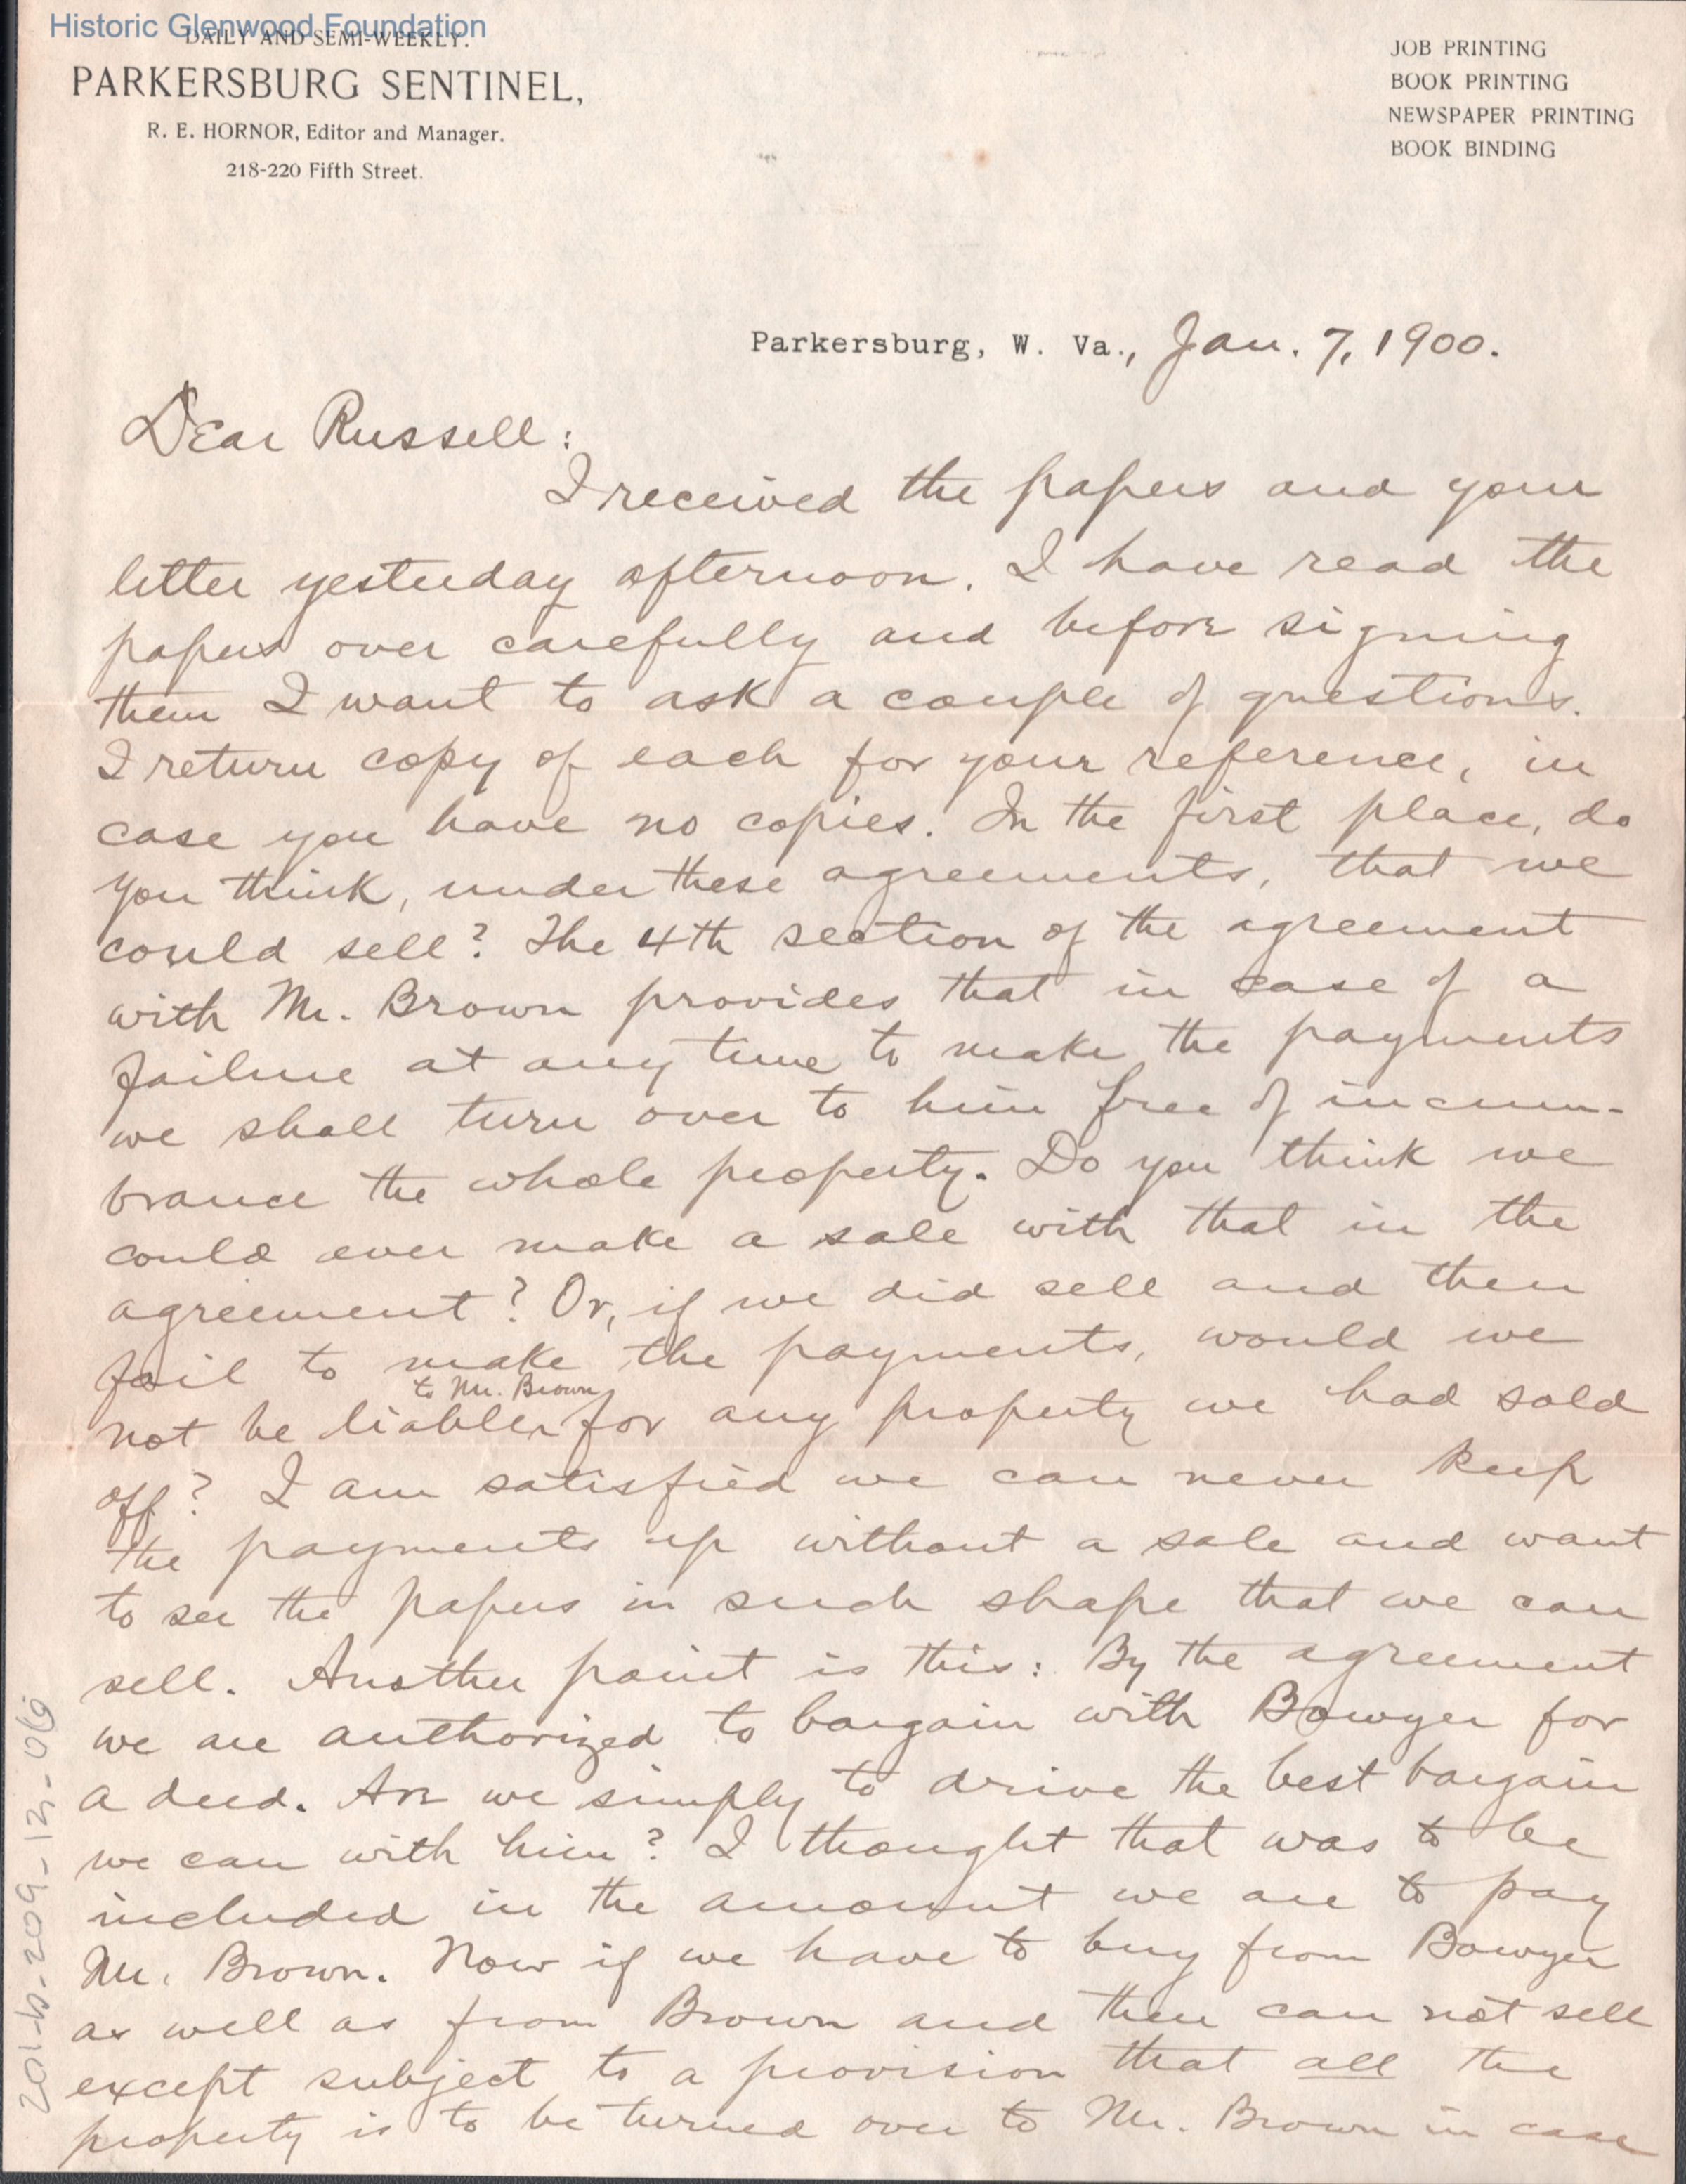 Historic Glenwood Foundation
DAILY AND SEMI-WEEKLY.
PARKERSBURG SENTINEL,
R. E. HORNOR, Editor and Manager.
218-220 Fifth Street.
JOB PRINTING
BOOK PRINTING
NEWSPAPER PRINTING
BOOK BINDING
Parkersburg, W. Va., Jan. 7, 1900.
Dear Russell:
I received the papers and your
letter yesterday afternoon. I have read the
papers over carefully and before signing
them I want to ask a couple of questions.
I return copy of each for your reference, in
case you have no copies. In the first place, do
you think, under these agreements, that we
could sell? The 4th section of the agreement
with Mr. Brown provides that in case of a
failure at any time to make the payments
we shall turn over to him free of incum-
brance the whole property. Do you think we
could ever make a sale with that in the
agreement? Or, if we did sell and then
fail to make the payments, would we
to Mr. Brown
not be liable for any property we had sold
off? I am satisfied we can never keep
the payments up without a sale and want
to see the papers in such shape that we can
sell. Another point is this: By the agreement
we are authorized to bargain with Bowyer for
a deed. Are we simply to drive the best bargain
we can with him? I thought that was to be
included in the amount we are to pay
Mr. Brown. Now if we have to buy from Bowyer
as well as from Brown and then can not sell
except subject to a provision that all the
property is to be turned over to Mr. Brown in case
201-b-209-13-06